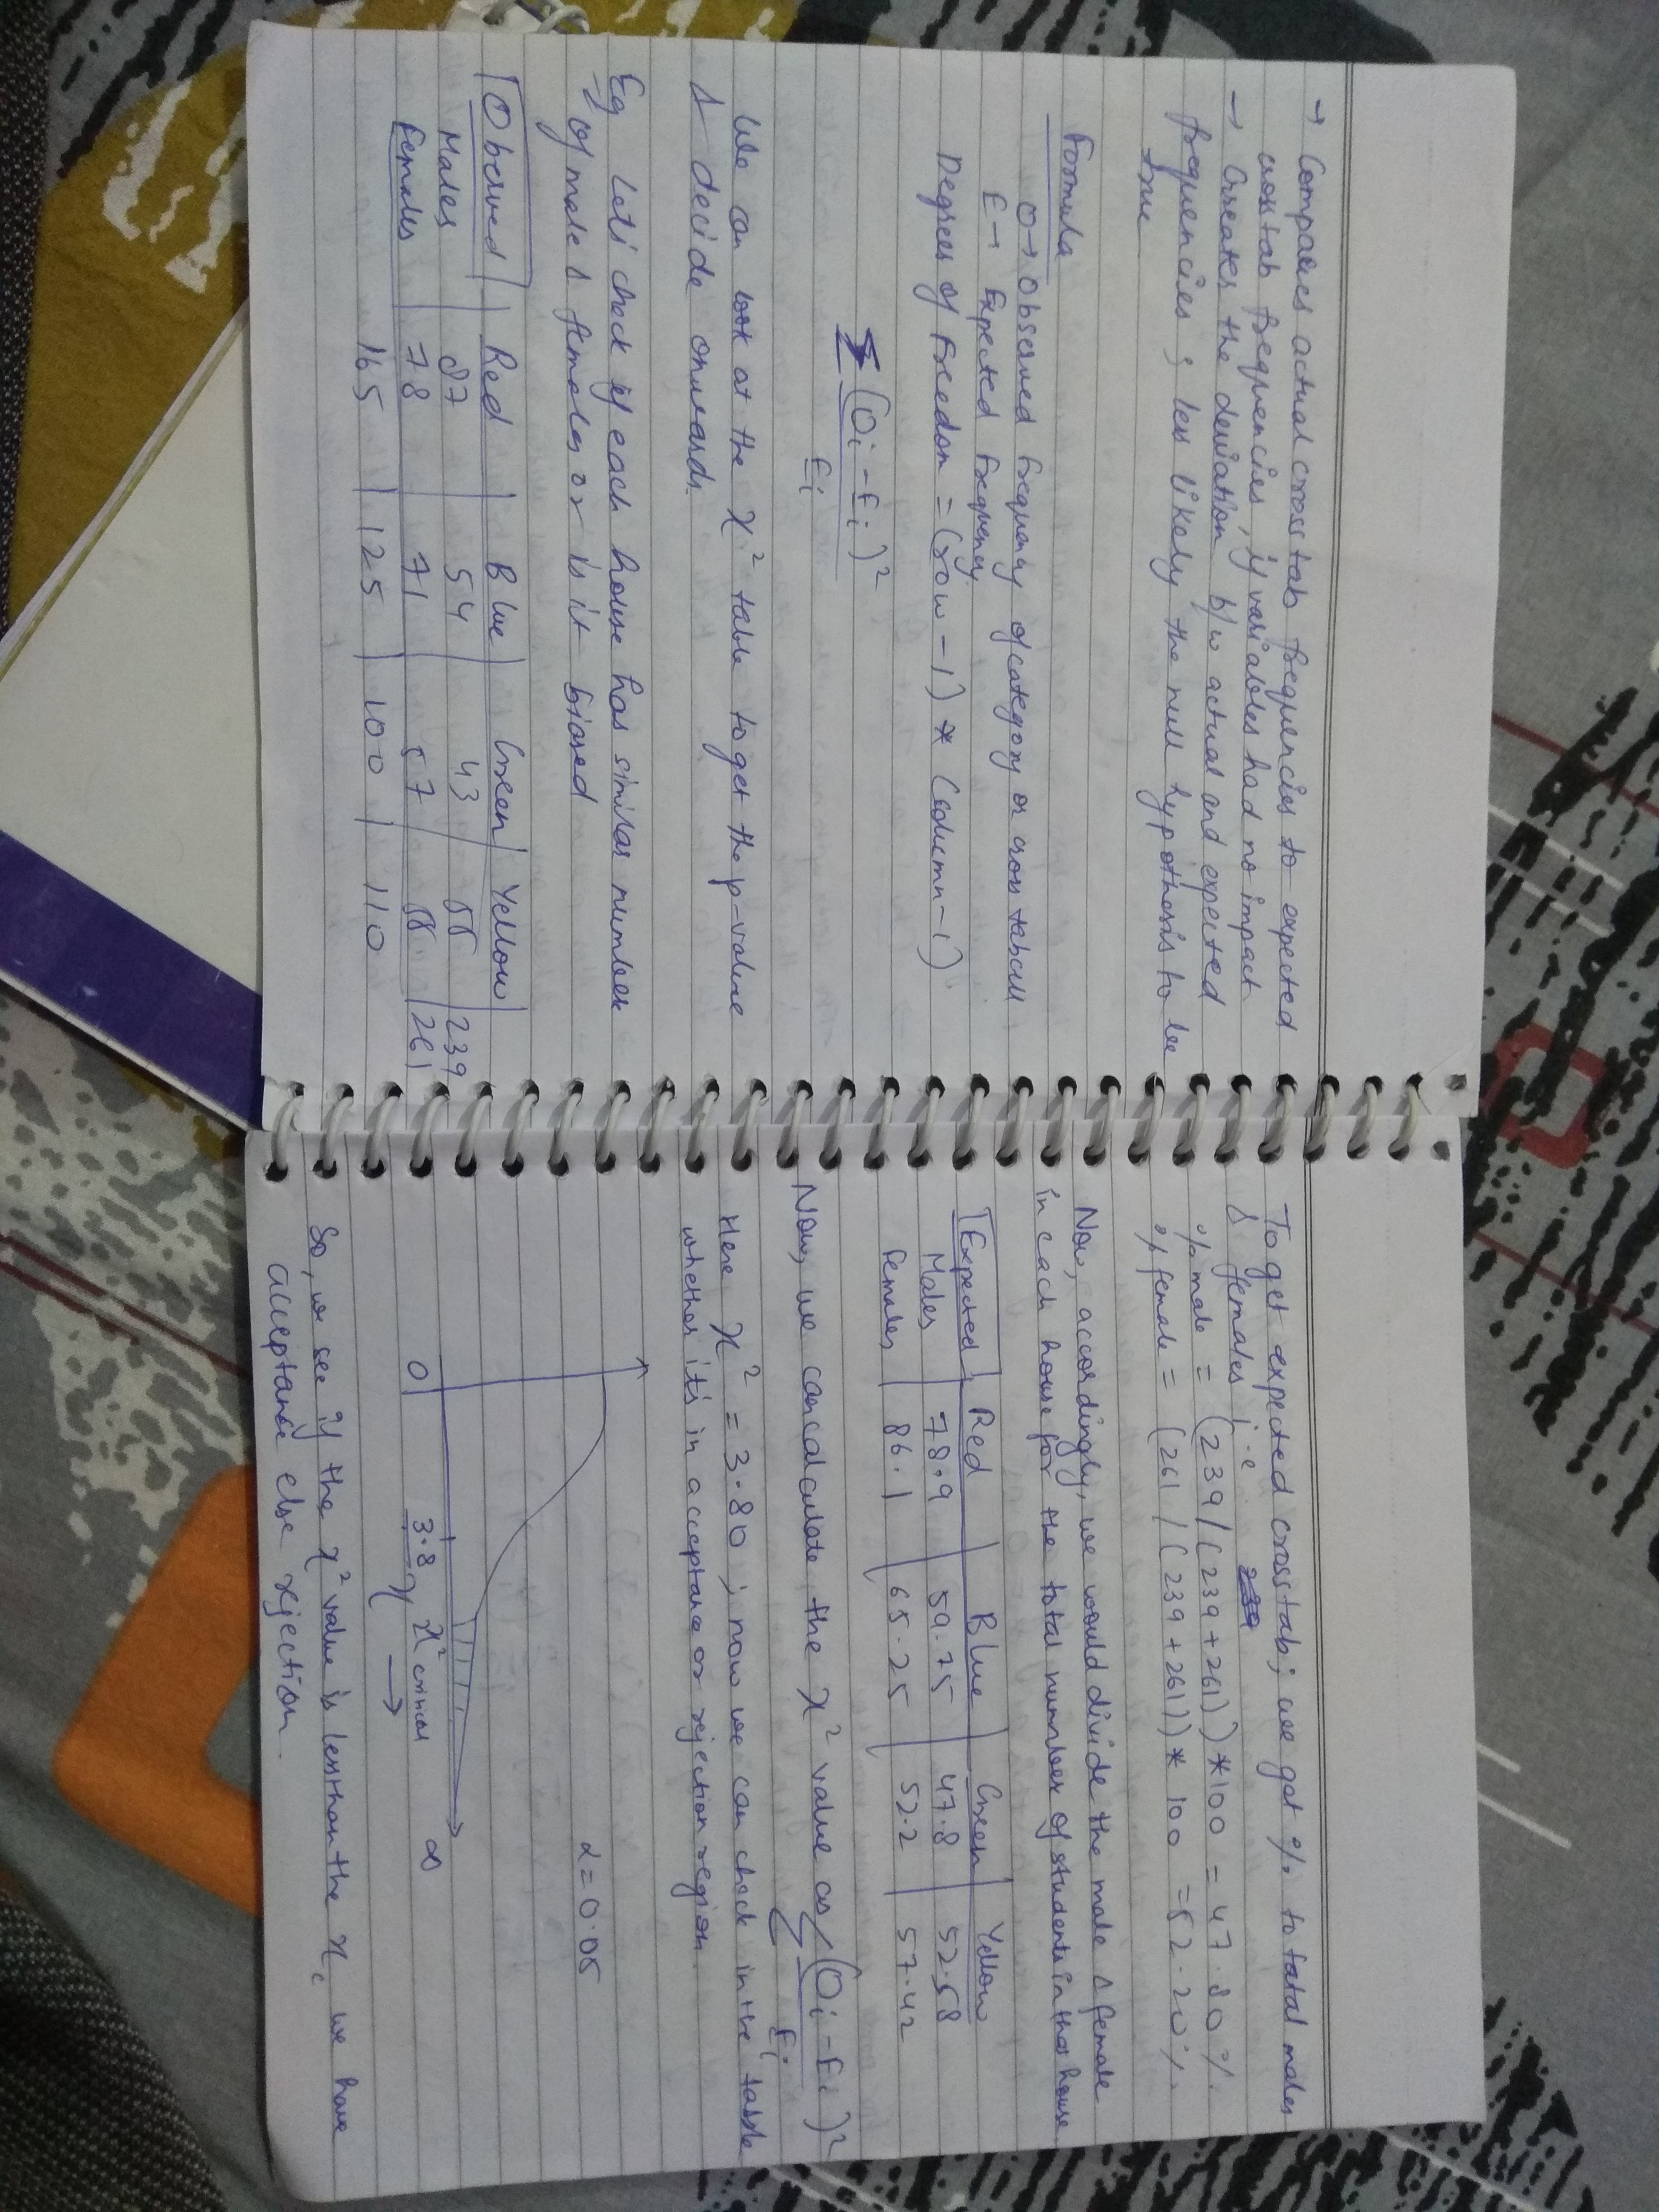 → Compares actual crosstab frequencies to expected
crosstab frequencies, if variables had no impact
→ Greater the deviation b/w actual and expected
frequencies; less likely the null hypothesis to be
true
Formula
O → Observed frequency of category or cross tabcell
E → Expected frequency
Degrees of freedom = (row - 1) * (column - 1)
Σ (Oi - Ei)²
Ei
We can look at the χ² table to get the p-value
& decide onwards.
Eg Lets check if each house has similar number
of male & females or is it biased
Observed | Red | Blue | Green | Yellow
Males 87 54 43 55 239
Females 78 71 57 55 261
165 | 125 | 100 | 110
To get expected crosstab; we get % to total males
& females i.e
% male = (239 / (239 + 261)) * 100 = 47.80 %.
% female = (261 / (239 + 261)) * 100 = 52.20 %.
Now, accordingly, we would divide the male & female
in each house for the total number of students in that house
Expected | Red | Blue | Green | Yellow
Males 78.9 59.75 47.8 52.58
Females 86.1 65.25 52.2 57.42
Now, we can calculate the χ² value as Σ (Oi - Ei)²
Ei
Here χ² = 3.80; now we can check in the table
whether it's in acceptance or rejection region
α = 0.05
0 3.8 χ² critical ∞
So, we see if the χ² value is less than the χc we have
acceptance else rejection.